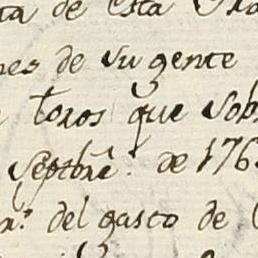 ta de esta
de su gente
toros que sob
Septbre. de 176
del gasto de